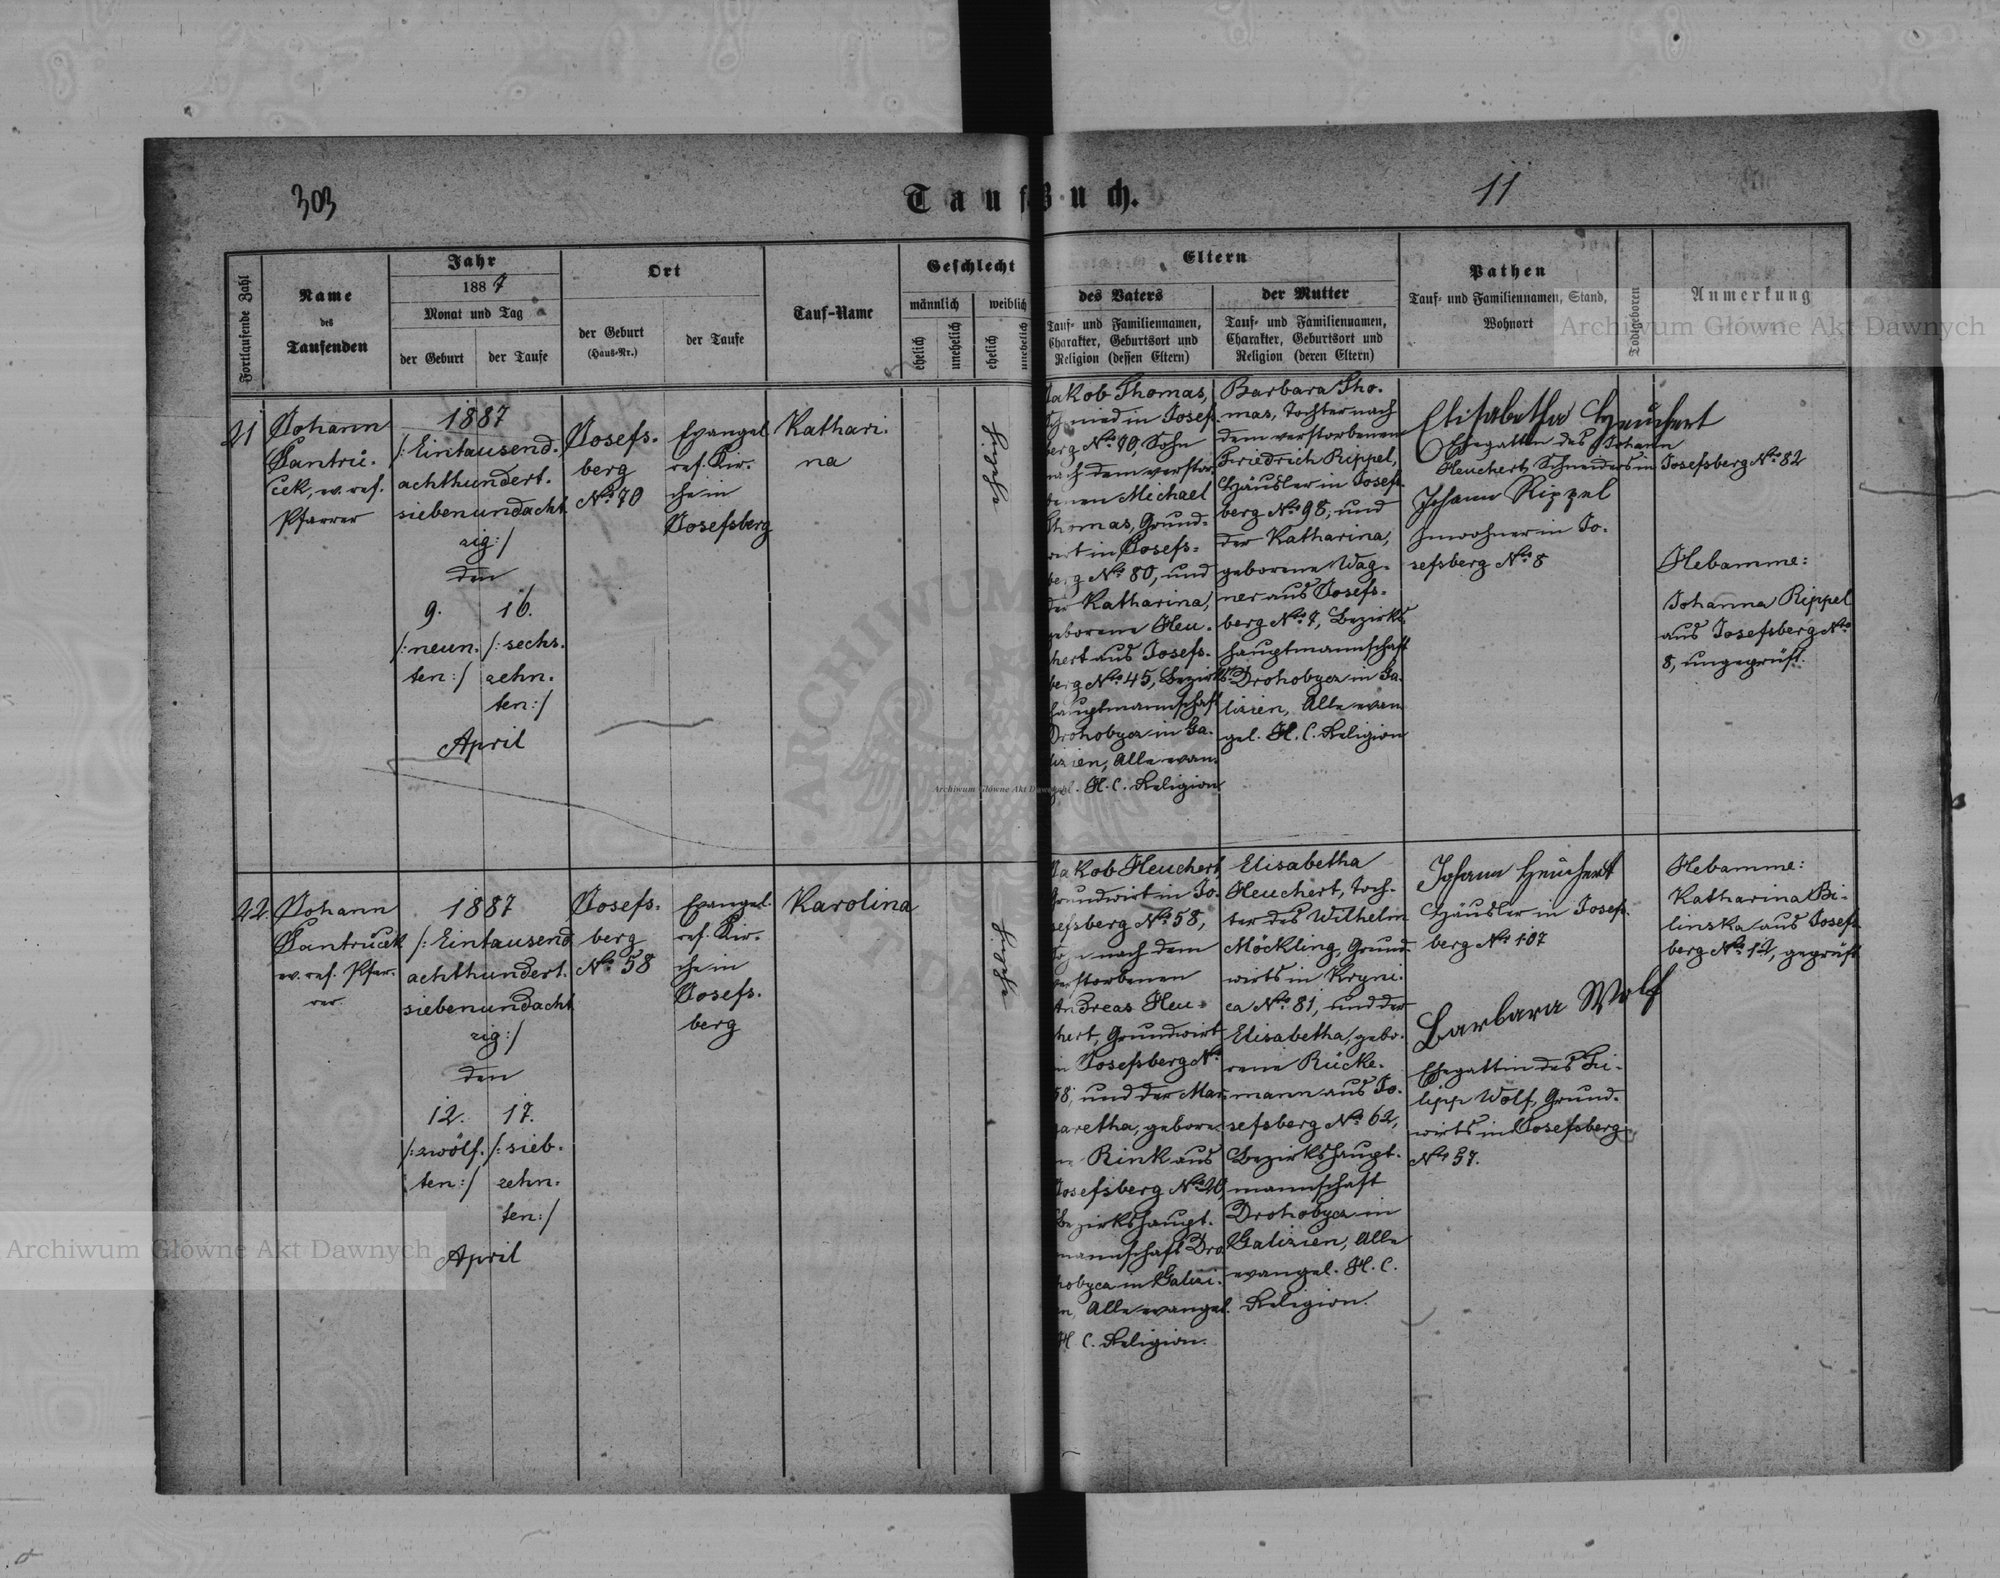 303
Taufbuch.
11
Fortlaufende Zahl
Name
des
Taufenden
Jahr
1887
Monat und Tag
der Geburt
der Taufe
Ort
der Geburt
(Haus-Nr.)
der Taufe
Tauf-Name
Geschlecht
männlich
weiblich
ehelich
unehelich
ehelich
unehelich
Eltern
des Vaters
Tauf- und Familiennamen,
Charakter, Geburtsort und
Religion (dessen Eltern)
der Mutter
Tauf- und Familiennamen,
Charakter, Geburtsort und
Religion (deren Eltern)
Pathen
Tauf- und Familiennamen, Stand,
Wohnort
Todtgeboren
Anmerkung
21
Johann
Santrů-
ček, ev. ref.
Pfarrer
1887
/: Eintausend-
achthundert-
siebenundacht
zig :/
den
9.
/: neun-
ten :/
16.
/: sechs-
zehn-
ten :/
April
Josefs-
berg
No 70
Evangel.
ref. Kir-
che in
Josefsberg
Kathari-
na
ehelich
Jakob Thomas,
Schmied in Josefs-
berg No 70, Sohn
nach dem verstor-
benen Michael
Thomas, Grund-
wirt in Josefs-
berg No 80, und
der Katharina,
geborene Heu-
chert aus Josefs-
berg No 45, Bezirks-
hauptmannschaft
Drohobycz in Ga-
lizien, Alle evan-
gel. H. C. Religion
Barbara Tho-
mas, Tochter nach
dem verstorbenen
Friedrich Rippel,
Häusler in Josefs-
berg No 98, und
der Katharina,
geborene Wag-
ner aus Josefs-
berg No 7, Bezirks-
hauptmannschaft
Drohobycz in Ga-
lizien, Alle evan
gel. H. C. Religion
Elisabetha Heuchert
Ehegattin des Johann
Heuchert, Schneiders in Josefsberg No 82
Johann Rippel
Inwohner in Jo-
sefsberg No 8
Hebamme:
Johanna Rippel
aus Josefsberg No
8, ungeprüft.
22.
Johann
Santrůček
ev. ref. Pfar-
rer.
1887
/: Eintausend
achthundert-
siebenundacht
zig :/
den
12.
/: zwölf-
ten :/
17.
/: sieb-
zehn-
ten :/
April
Josefs-
berg
No 58
Evangel.
ref. Kir-
che in
Josefs-
berg
Karolina
ehelich
Jakob Heuchert
Grundwirt in Jo-
sefsberg No 58,
Sohn nach dem
verstorbenen
Andreas Heu-
chert, Grundwirt
in Josefsberg No
58, und der Mar-
garetha, gebore-
ne Rink aus
Josefsberg No 20,
Bezirkshaupt-
mannschaft Dro
hobycz in Galizi-
en, Alle evangel.
H. C. Religion.
Elisabetha
Heuchert, Toch-
ter des Wilhelm
Möckling, Grund-
wirts in Kryni-
ca No 81, und der
Elisabetha, gebo-
rene Rücke-
mann aus Jo-
sefsberg No 62,
Bezirkshaupt-
mannschaft
Drohobycz in
Galizien, Alle
evangel. H. C.
Religion.
Johann Heuchert
Häusler in Josefs-
berg No 107
Barbara Wolf
Ehegattin des Fi-
lipp Wolf, Grund-
wirts in Josefsberg
No 57.
Hebamme:
Katharina Bi-
linska aus Josefs-
berg No 12, geprüft
Archiwum Główne Akt Dawnych
Archiwum Główne Akt Dawnych
Archiwum Główne Akt Dawnych